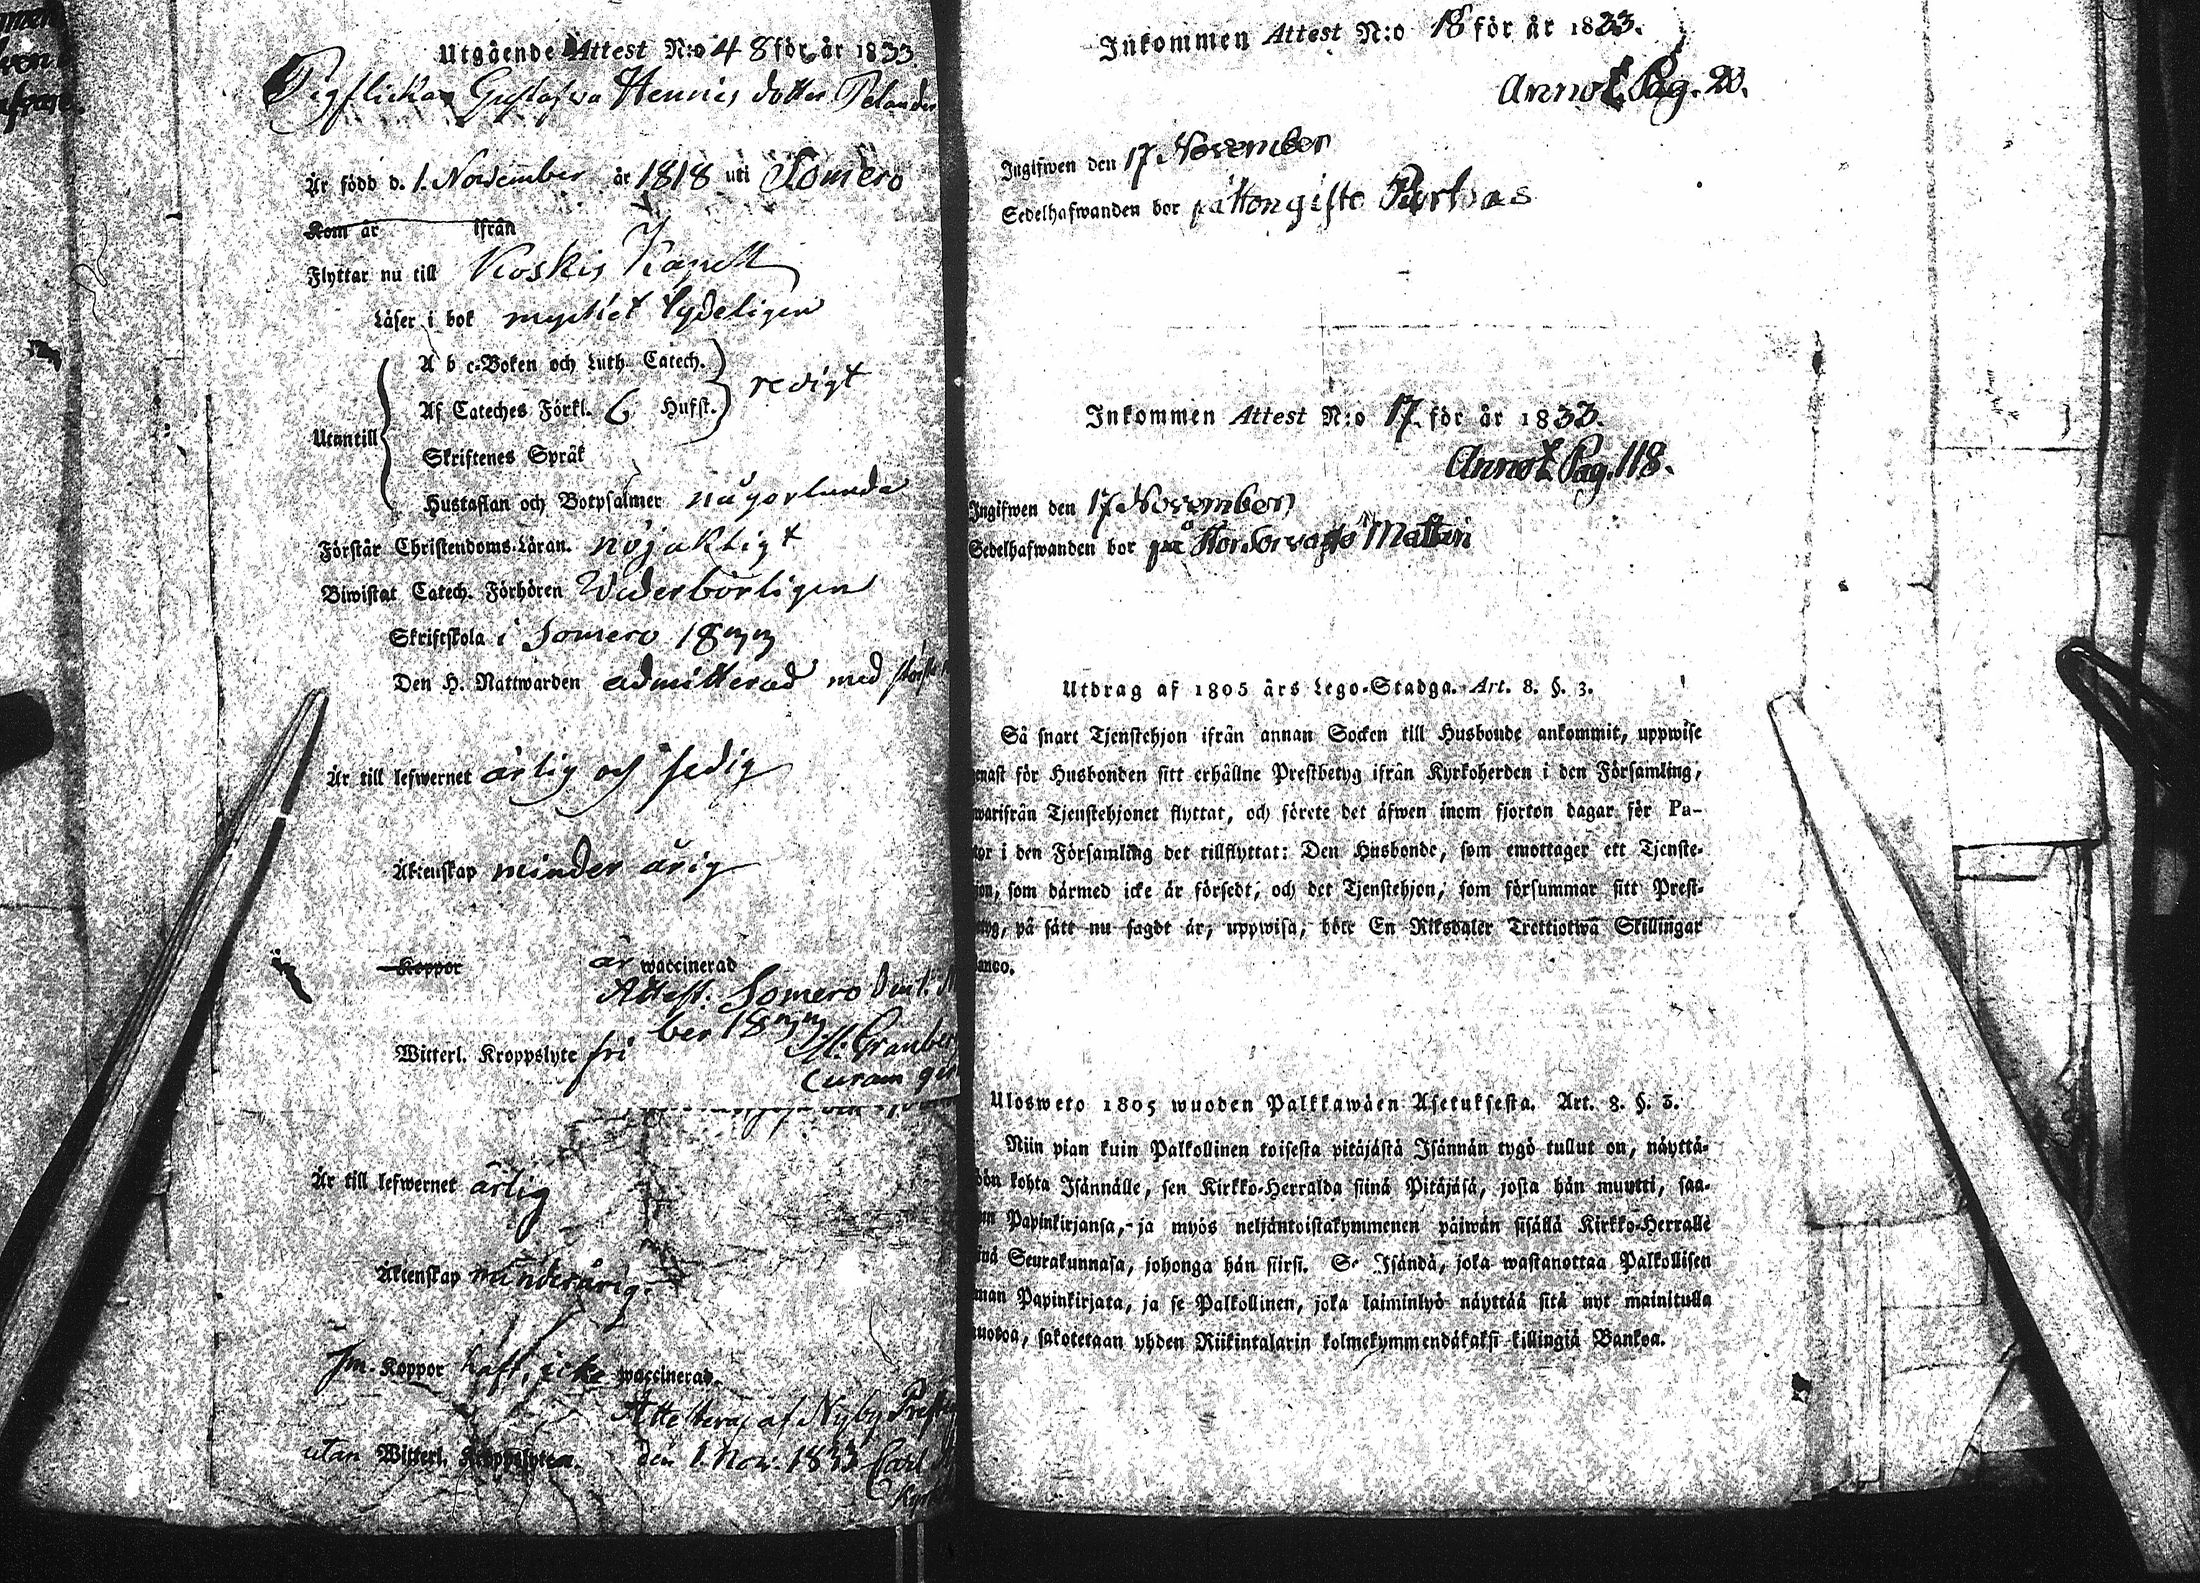 Utgående Attest N:o 48 för år 1833
Pigflickan Gustafva Hennis dotter Pelander
Är född d. 1. November år 1818 uti Somero
Kom år ifrån
Flyttar nu till Koskis Kapell
Läser i bok mycket tydeligen
A b c-Boken och Luth. Catech.
Af Cateches Förkl. 6 Hufst. redigt
Utantill
Skriftenes Språk
Hustaflan och Botpsalmer någorlunda
Förstår Christendoms-Läran. nöjaktigt
Biwistat Catech. Förhören Wederbörligen
Skriftskola i Somero 1833
Den H. Nattwarden admitterad med
Är till lefwernet ärlig och sedig
Äktenskap minder årig
Koppor är waccinerad
Attest. Somero den 1.
ber 1833
Witterl. Kroppslyte fri
curam
Är till lefwernet ärlig
Äktenskap minderårig.
Koppor haft, icke waccinerad.
Attesteras af Nyby
utan Witterl. Kroppslyten. den 1 Nov. 1833 Carl
Inkommen Attest N:o 18 för år 1833.
Annot. Pag. 20.
Ingifwen den 17 November
Sedelhafwanden bor på
Inkommen Attest N:o 17 för år 1833.
Annot. Pag. 118.
Ingifwen den 17 November
Sedelhafwanden bor på Mattari
Utdrag af 1805 års Lego-Stadga. Art. 8. §. 3.
Så snart Tjenstehjon ifrån annan Socken till Husbonde ankommit, uppwise
enast för Husbonden sitt erhållne Prestbetyg ifrån Kyrkoherden i den Församling,
warifrån Tjenstehjonet flyttat, och förete det äfwen inom fjorton dagar för Pa-
tor i den Församling det tillflyttat: Den Husbonde, som emottager ett Tjenste-
jon, som därmed icke är försedt, och det Tjenstehjon, som försummar sitt Prest-
tyg, på sätt nu sagdt är, uppwisa, böte En Riksdaler Trettiotwå Skillingar
anco.
Ulosweto 1805 wuoden Palkkawäen Asetuksesta. Art. 8. §. 3.
Niin pian kuin Palkollinen toisesta pitäjästä Isännän tygö tullut on, näyttä-
kön kohta Isännälle, sen Kirkko-Herralda siinä Pitäjäsä, josta hän muutti, saa-
un Papinkirjansa, ja myös neljäntoistakymmenen päiwän sisällä Kirkko-Herralle
iinä Seurakunnasa, johonga hän siirsi. Se Isändä, joka wastanottaa Palkollisen
man Papinkirjata, ja se Palkollinen, joka laiminlyö näyttää sitä nyt mainitulla
uotoa, sakotetaan yhden Riikintalarin kolmekymmendäkaksi killingiä Bankoa.